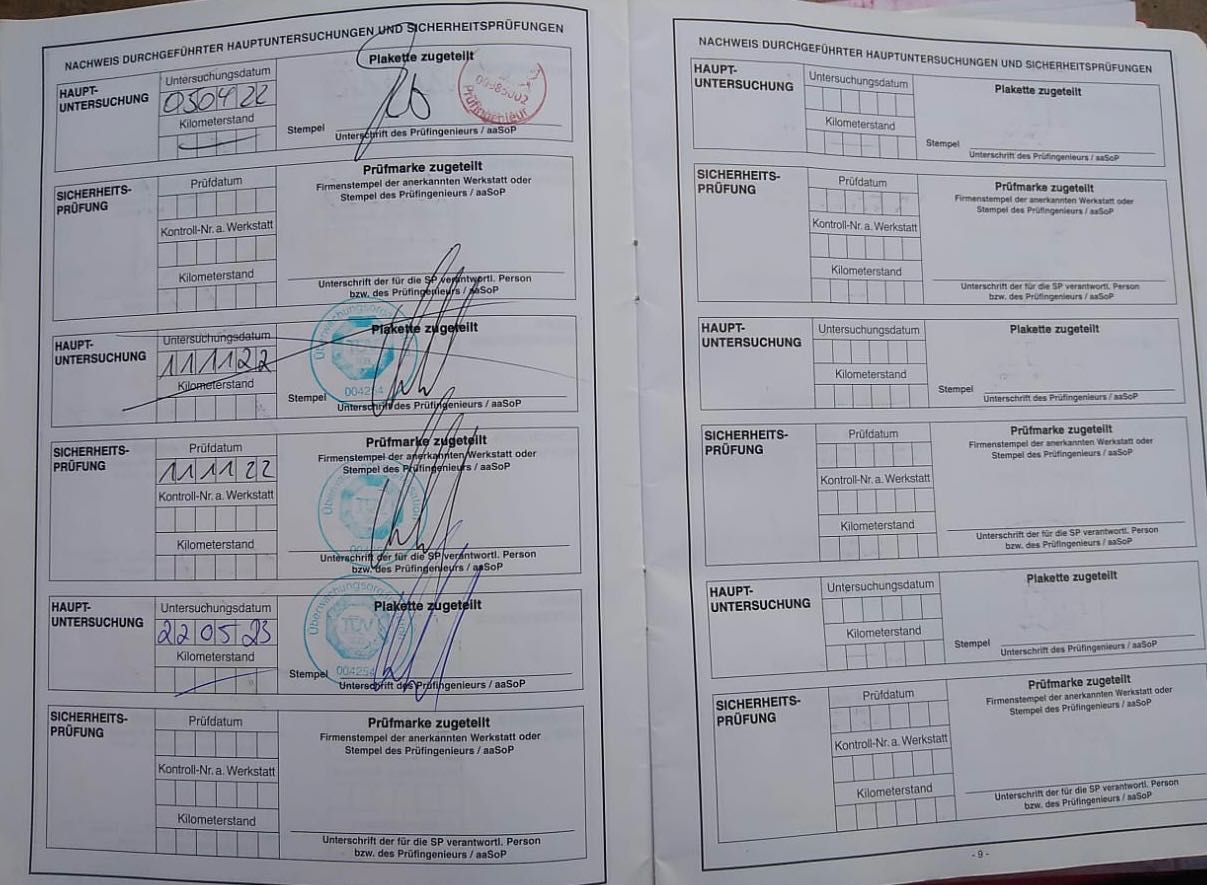 NACHWEIS DURCHGEFÜHRTER HAUPTUNTERSUCHUNGEN UND SICHERHEITSPRÜFUNGEN
HAUPT-
UNTERSUCHUNG
Untersuchungsdatum
050422
Kilometerstand
Plakette zugeteilt
Prüfingenieur
Stempel
Unterschrift des Prüfingenieurs / aaSoP
SICHERHEITS-
PRÜFUNG
Prüfdatum
Kontroll-Nr. a. Werkstatt
Kilometerstand
Prüfmarke zugeteilt
Firmenstempel der anerkannten Werkstatt oder
Stempel des Prüfingenieurs / aaSoP
Unterschrift der für die SP verantwortl. Person
bzw. des Prüfingenieurs / aaSoP
HAUPT-
UNTERSUCHUNG
Untersuchungsdatum
111122
Kilometerstand
Plakette zugeteilt
004254
Stempel
Unterschrift des Prüfingenieurs / aaSoP
SICHERHEITS-
PRÜFUNG
Prüfdatum
111122
Kontroll-Nr. a. Werkstatt
Kilometerstand
Prüfmarke zugeteilt
Firmenstempel der anerkannten Werkstatt oder
Stempel des Prüfingenieurs / aaSoP
TÜV
Unterschrift der für die SP verantwortl. Person
bzw. des Prüfingenieurs / aaSoP
HAUPT-
UNTERSUCHUNG
Untersuchungsdatum
220523
Kilometerstand
Plakette zugeteilt
TÜV
004254
Stempel
Unterschrift des Prüfingenieurs / aaSoP
SICHERHEITS-
PRÜFUNG
Prüfdatum
Kontroll-Nr. a. Werkstatt
Kilometerstand
Prüfmarke zugeteilt
Firmenstempel der anerkannten Werkstatt oder
Stempel des Prüfingenieurs / aaSoP
Unterschrift der für die SP verantwortl. Person
bzw. des Prüfingenieurs / aaSoP
NACHWEIS DURCHGEFÜHRTER HAUPTUNTERSUCHUNGEN UND SICHERHEITSPRÜFUNGEN
HAUPT-
UNTERSUCHUNG
Untersuchungsdatum
Kilometerstand
Plakette zugeteilt
Stempel
Unterschrift des Prüfingenieurs / aaSoP
SICHERHEITS-
PRÜFUNG
Prüfdatum
Kontroll-Nr. a. Werkstatt
Kilometerstand
Prüfmarke zugeteilt
Firmenstempel der anerkannten Werkstatt oder
Stempel des Prüfingenieurs / aaSoP
Unterschrift der für die SP verantwortl. Person
bzw. des Prüfingenieurs / aaSoP
HAUPT-
UNTERSUCHUNG
Untersuchungsdatum
Kilometerstand
Plakette zugeteilt
Stempel
Unterschrift des Prüfingenieurs / aaSoP
SICHERHEITS-
PRÜFUNG
Prüfdatum
Kontroll-Nr. a. Werkstatt
Kilometerstand
Prüfmarke zugeteilt
Firmenstempel der anerkannten Werkstatt oder
Stempel des Prüfingenieurs / aaSoP
Unterschrift der für die SP verantwortl. Person
bzw. des Prüfingenieurs / aaSoP
HAUPT-
UNTERSUCHUNG
Untersuchungsdatum
Kilometerstand
Plakette zugeteilt
Stempel
Unterschrift des Prüfingenieurs / aaSoP
SICHERHEITS-
PRÜFUNG
Prüfdatum
Kontroll-Nr. a. Werkstatt
Kilometerstand
Prüfmarke zugeteilt
Firmenstempel der anerkannten Werkstatt oder
Stempel des Prüfingenieurs / aaSoP
Unterschrift der für die SP verantwortl. Person
bzw. des Prüfingenieurs / aaSoP
- 9 -